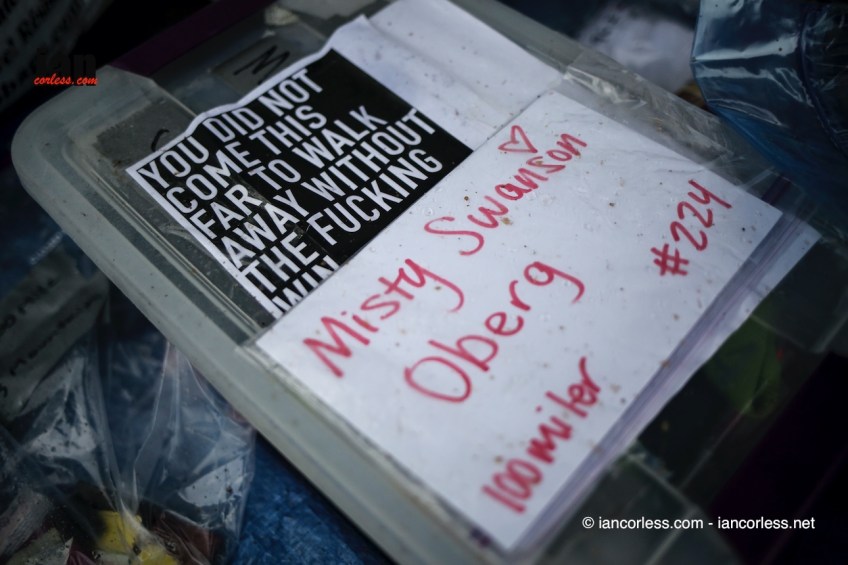 corless.com
M
YOU DID NOT
COME THIS
FAR TO WALK
AWAY WITHOUT
THE FUCKING
WIN
Misty Swanson
Oberg
#224
100 miler
© iancorless.com - iancorless.net